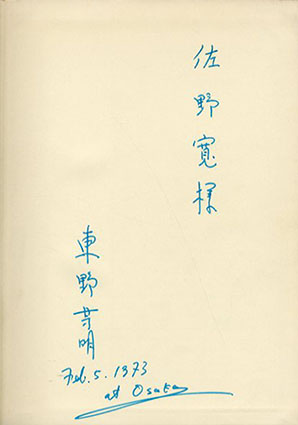 佐野寛様
東野芳明
Feb. 5. 1973
at Osaka